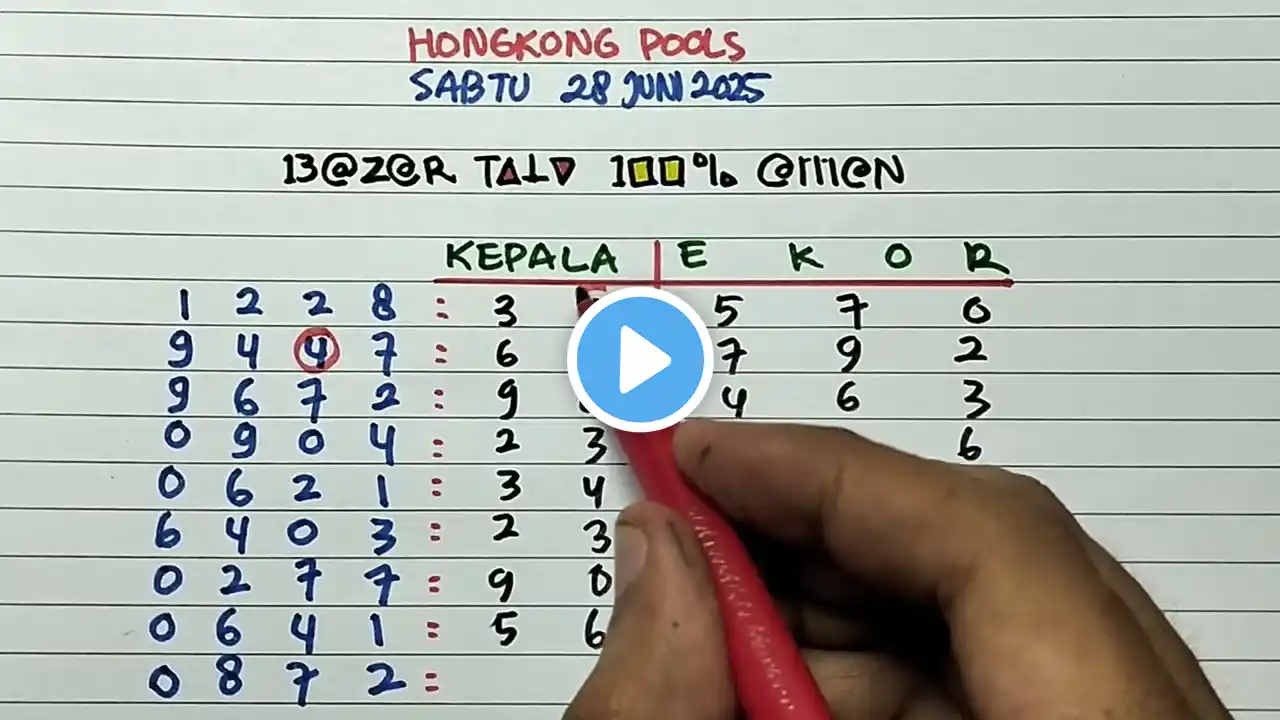 HONGKONG POOLS
SABTU 28 JUNI 2025
13@Z@R 100% @MM@N
KEPALA | E K O R
1 2 2 8 : 3 5 7 0
9 4 4 7 : 6 7 9 2
9 6 7 2 : 9 4 6 3
0 9 0 4 : 2 3 6
0 6 2 1 : 3 4
6 4 0 3 : 2 3
0 2 7 7 : 9 0
0 6 4 1 : 5 6
0 8 7 2 :